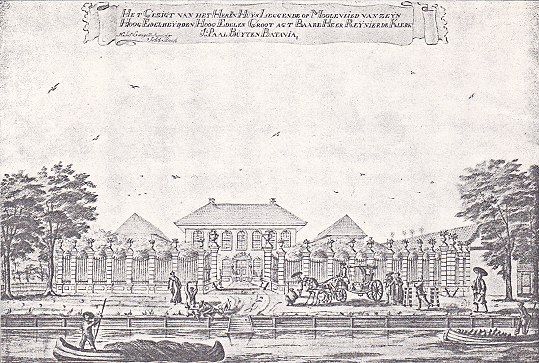 HET GESIGT VAN HET HEERE HUYS LEGGENDE OP MOOLENVLIED VAN ZEYN
HOOG EDELHEYD DEN HOOG EDELEN GROOT AGT BAARE HEER REYNIER DE KLERK
BUYTEN BATAVIA,